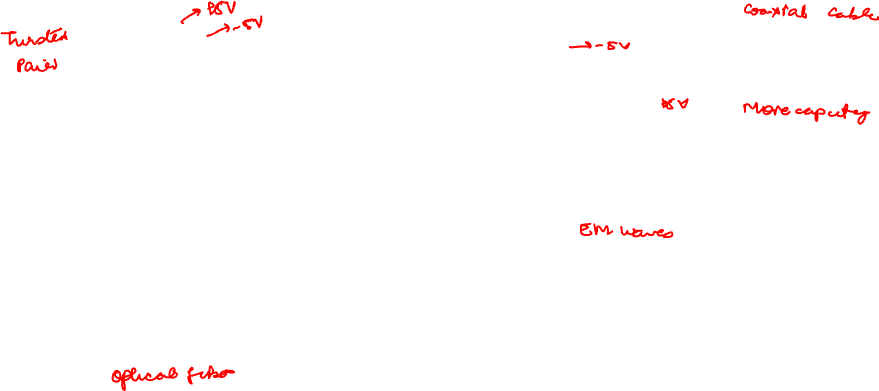 +5V
→ -5V
Twisted
Pair
→ -5V
Coaxial Cable
+5V
More capacity
EM waves
Optical fiber